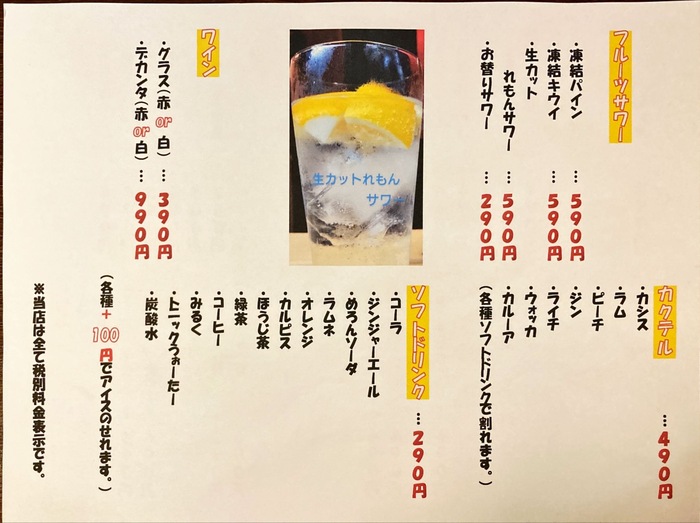 フルーツサワー
・凍結パイン … 590円
・凍結キウイ … 590円
・生カット
れもんサワー … 590円
・お替りサワー … 290円
生カットれもん
サワー
ワイン
・グラス(赤or白) … 390円
・デカンタ(赤or白) … 990円
カクテル … 490円
・カシス
・ラム
・ピーチ
・ジン
・ライチ
・ウォッカ
・カルーア
(各種ソフトドリンクで割れます。)
ソフトドリンク … 290円
・コーラ
・ジンジャーエール
・めろんソーダ
・ラムネ
・オレンジ
・カルピス
・ほうじ茶
・緑茶
・コーヒー
・みるく
・トニックうぉーたー
・炭酸水
(各種+100円でアイスのせれます。)
※当店は全て税別料金表示です。